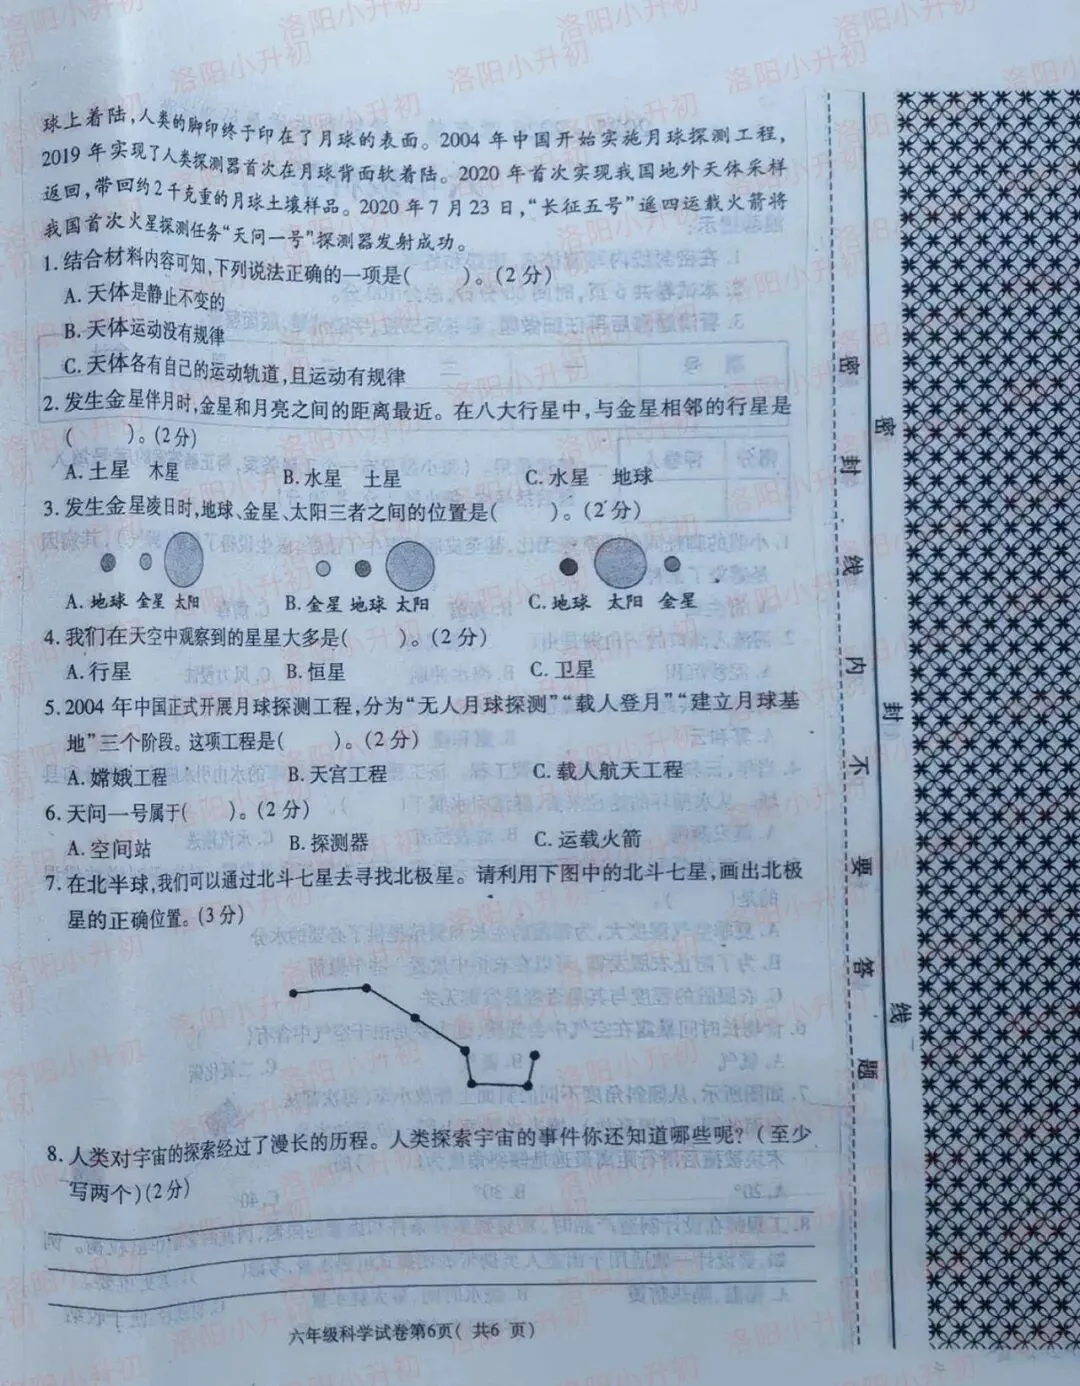 球上着陆,人类的脚印终于印在了月球的表面。2004 年中国开始实施月球探测工程,
2019 年实现了人类探测器首次在月球背面软着陆。2020 年首次实现我国地外天体采样
返回,带回约2千克重的月球土壤样品。2020年7月23日,“长征五号”遥四运载火箭将
我国首次火星探测任务“天问一号”探测器发射成功。
1. 结合材料内容可知,下列说法正确的一项是(　　)。(2分)
A. 天体是静止不变的
B. 天体运动没有规律
C. 天体各有自己的运动轨道,且运动有规律
2. 发生金星伴月时,金星和月亮之间的距离最近。在八大行星中,与金星相邻的行星是
(　　)。(2分)
A. 土星 木星 B. 水星 土星 C. 水星 地球
3. 发生金星凌日时,地球、金星、太阳三者之间的位置是(　　)。(2分)
A. 地球 金星 太阳 B. 金星 地球 太阳 C. 地球 太阳 金星
4. 我们在天空中观察到的星星大多是(　　)。(2分)
A. 行星 B. 恒星 C. 卫星
5. 2004 年中国正式开展月球探测工程,分为“无人月球探测”“载人登月”“建立月球基
地”三个阶段。这项工程是(　　)。(2分)
A. 嫦娥工程 B. 天宫工程 C. 载人航天工程
6. 天问一号属于(　　)。(2分)
A. 空间站 B. 探测器 C. 运载火箭
7. 在北半球,我们可以通过北斗七星去寻找北极星。请利用下图中的北斗七星,画出北极
星的正确位置。(3分)
8. 人类对宇宙的探索经过了漫长的历程。人类探索宇宙的事件你还知道哪些呢?(至少
写两个)(2分)
六年级科学试卷第6页( 共6 页)
密 封 线 内 不 要 答 题
密 封 线
洛阳小升初